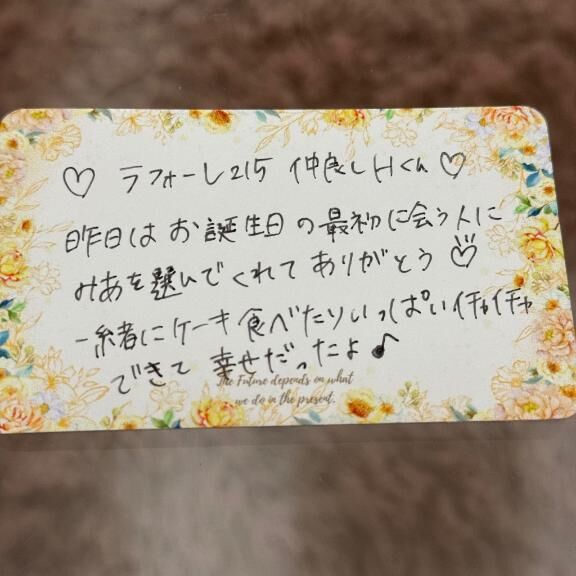 ♡ ラフォーレ215 仲良しHくん ♡
昨日はお誕生日の最初に会う人に
みあを選んでくれてありがとう♡
一緒にケーキ食べたりいっぱいイチャイチャ
できて幸せだったよ♪
The Future depends on what
we do in the present.